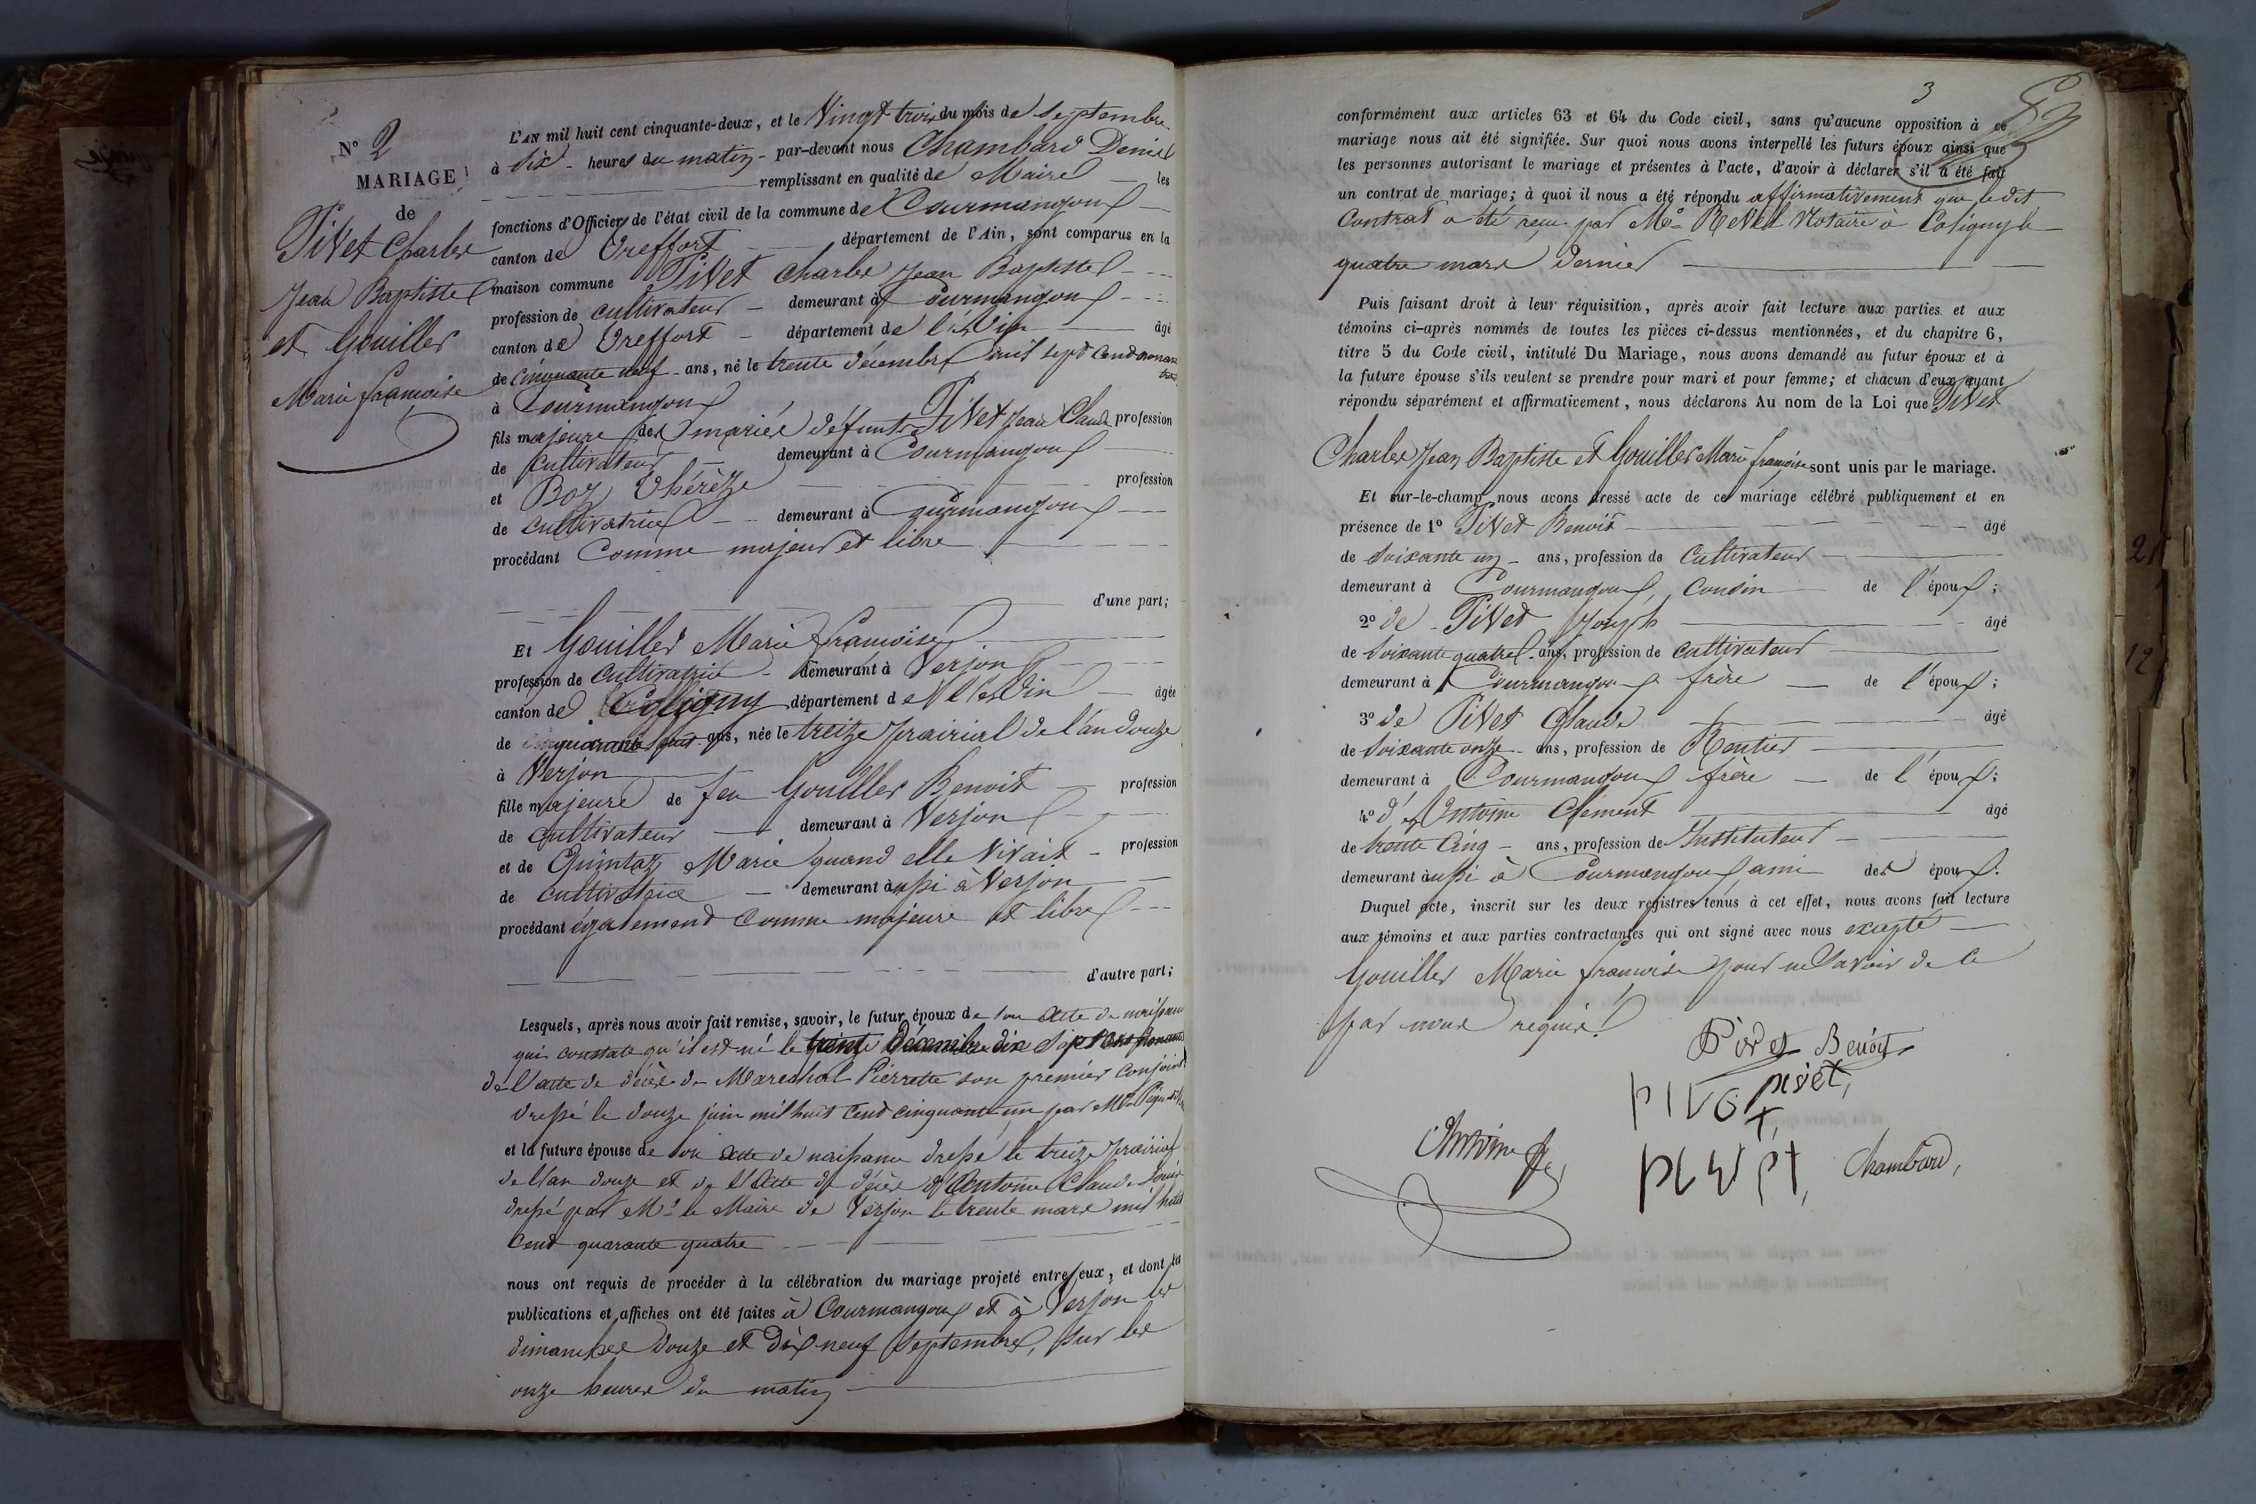 N° 2
MARIAGE
de
Pivet Charles
Jean Baptiste
et Gouiller
Marie françoise
L'AN mil huit cent cinquante-deux, et le Vingt trois du mois de Septembre
à dix heures du matin par-devant nous Chambard Denis
remplissant en qualité de Maire les
fonctions d'Officier de l'état civil de la commune de Courmangoux
canton de Treffort département de l'Ain, sont comparus en la
maison commune Pivet Charles Jean Baptiste
profession de cultivateur demeurant à Courmangoux
canton de Treffort département de l'Ain âgé
de cinquante neuf ans, né le trente décembre mil sept cent nonante
trois
à Courmangoux
fils majeure des mariés défunts Pivet Jean Claude profession
de cultivateur demeurant à Courmangoux
et Boz Thérèze profession
de cultivatrice demeurant à Courmangoux
procédant comme majeur et libre
d'une part;
Et Gouiller Marie françoise
profession de cultivatrice demeurant à Verjon
canton de Coligny département de l'Ain âgée
de quarante huit ans, née le treize prairial de l'an douze
à Verjon
fille majeure de feu Gouiller Benoit profession
de cultivateur demeurant à Verjon
et de Quintaz Marie quand elle vivait profession
de cultivatrice demeurant aussi à Verjon
procédant également comme majeure et libre
d'autre part;
Lesquels, après nous avoir fait remise, savoir, le futur époux de son acte de naissance
qui constate qu'il est né le trente Décembre dix sept cent nonante
de l'acte de décès de Marechal Pierrette son premier conjoint
dressé le douze juin mil huit cent cinquante un par Mr
et la future épouse de son acte de naissance dressé le treize prairial
de l'an douze et de l'acte de décès d'Antoine Claude Louis
dressé par Mr le Maire de Verjon le trente mars mil huit
cent quarante quatre
nous ont requis de procéder à la célébration du mariage projeté entre eux, et dont les
publications et affiches ont été faites à Courmangoux et à Verjon les
dimanches douze et dix neuf Septembre, sur les
onze heures du matin
3
conformément aux articles 63 et 64 du Code civil, sans qu'aucune opposition à ce
mariage nous ait été signifiée. Sur quoi nous avons interpellé les futurs époux ainsi que
les personnes autorisant le mariage et présentes à l'acte, d'avoir à déclarer s'il a été fait
un contrat de mariage; à quoi il nous a été répondu affirmativement que ledit
Contrat a été reçu par Me Revel Notaire à Coligny le
quatre mars dernier
Puis faisant droit à leur réquisition, après avoir fait lecture aux parties et aux
témoins ci-après nommés de toutes les pièces ci-dessus mentionnées, et du chapitre 6,
titre 5 du Code civil, intitulé Du Mariage, nous avons demandé au futur époux et à
la future épouse s'ils veulent se prendre pour mari et pour femme; et chacun d'eux ayant
répondu séparément et affirmativement, nous déclarons Au nom de la Loi que Pivet
Charles Jean Baptiste et Gouiller Marie françoise sont unis par le mariage.
Et sur-le-champ nous avons dressé acte de ce mariage célébré publiquement et en
présence de 1° Pivet Benoit âgé
de soixante un ans, profession de cultivateur
demeurant à Courmangoux, cousin de l'époux;
2° de Pivet Joseph âgé
de soixante quatre ans, profession de cultivateur
demeurant à Courmangoux frère de l'époux;
3° de Pivet Claude âgé
de soixante onze ans, profession de Rentier
demeurant à Courmangoux frère de l'époux;
4° d'Antoine Clément âgé
de trente cinq ans, profession de Instituteur
demeurant aussi à Courmangoux ami des époux.
Duquel acte, inscrit sur les deux registres tenus à cet effet, nous avons fait lecture
aux témoins et aux parties contractantes qui ont signé avec nous excepté
Gouiller Marie françoise pour ne savoir de ce
par nous requise
Pivet Benoit
pivet
pivet
Antoine
pivet
Chambard